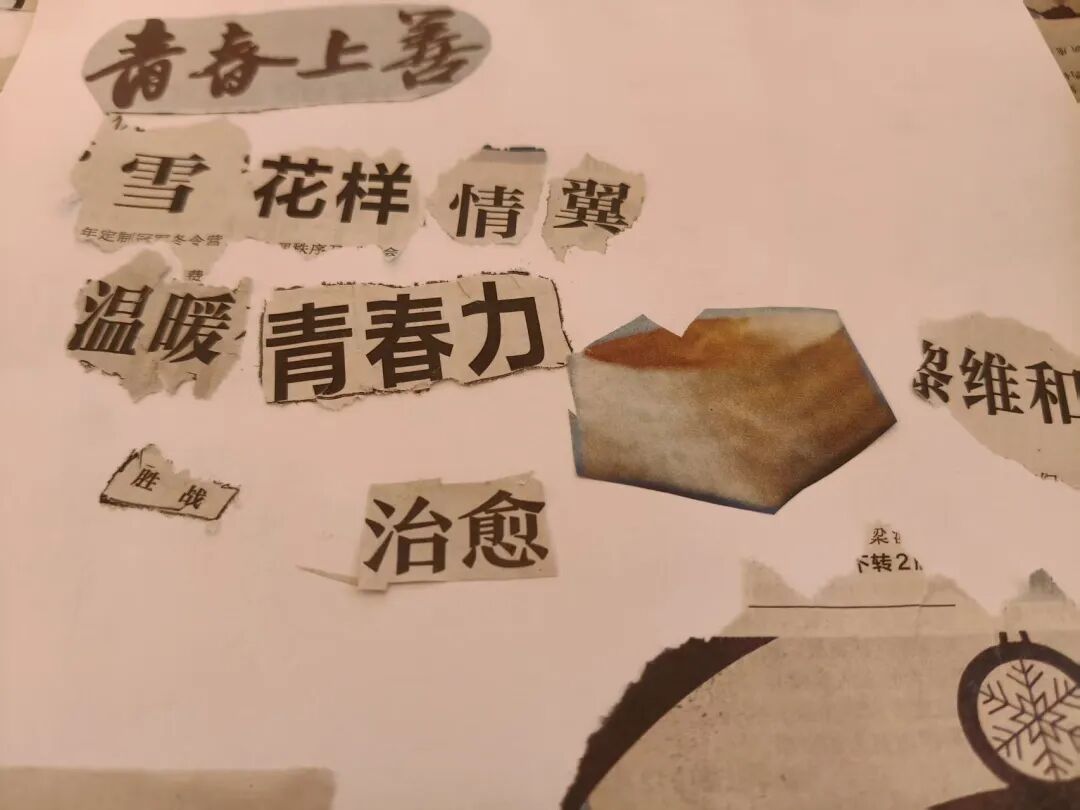 青春上善
雪 花样 情 翼
年定制冠军冬令营
秩序 会
费
温暖 青春力
黎维和
胜战
治愈
梁
下转2